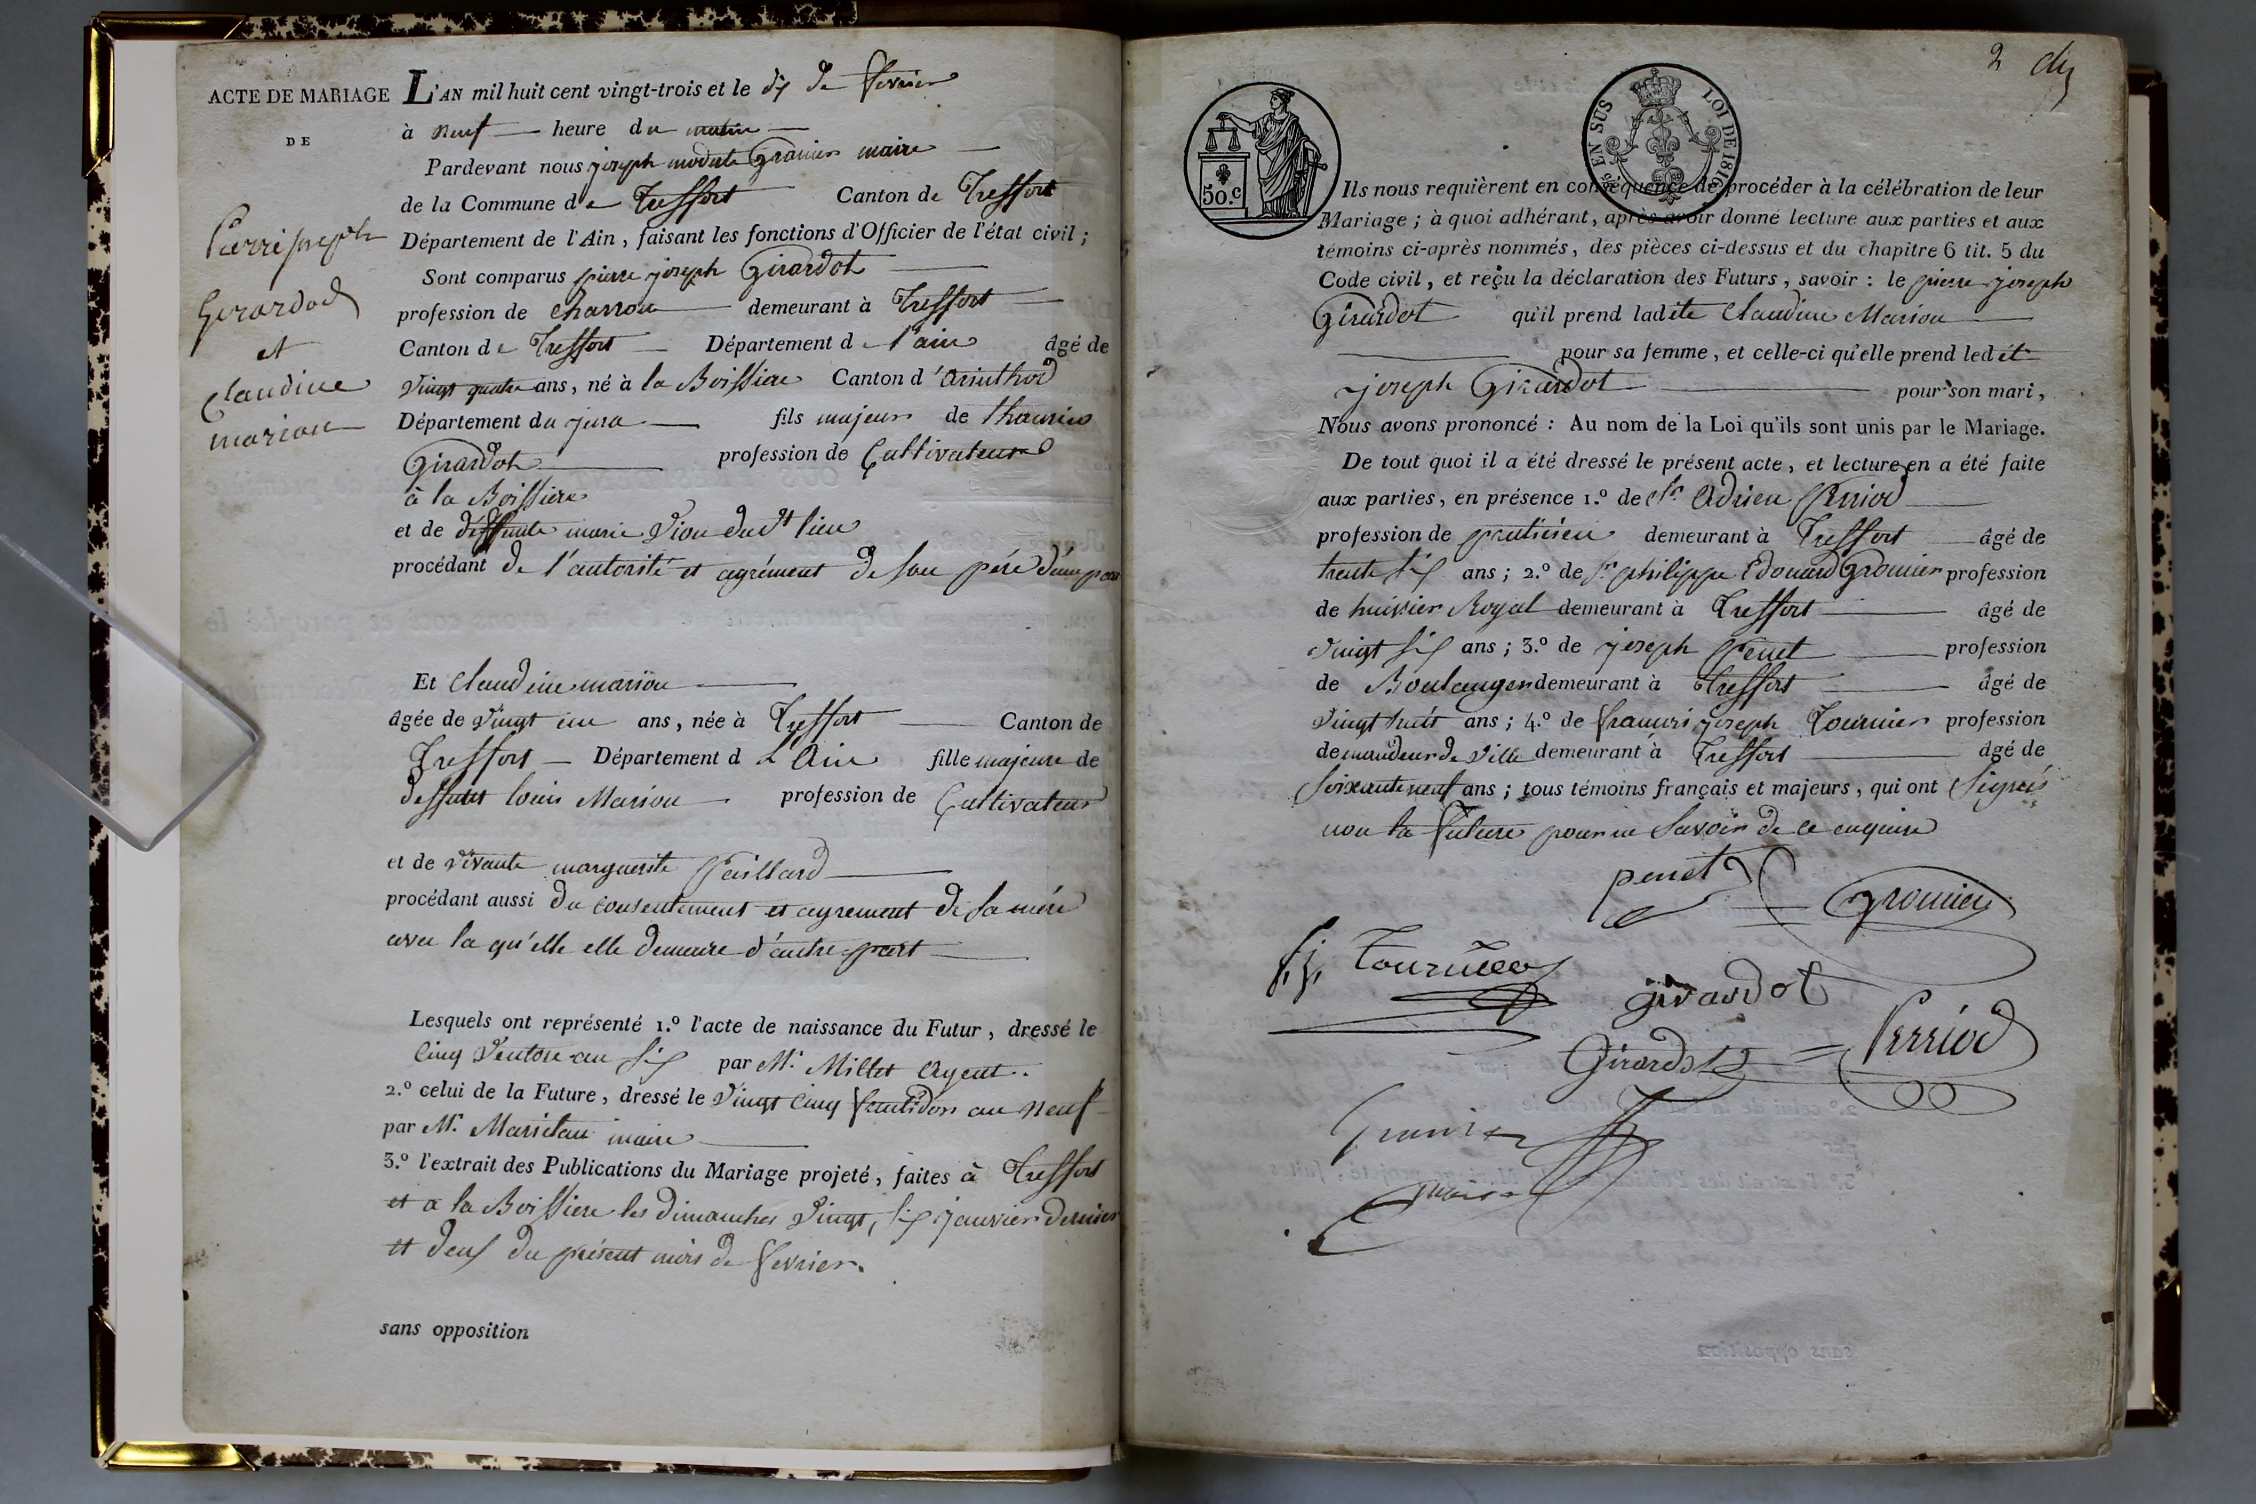 ACTE DE MARIAGE
DE
Pierre joseph
Girardod
et
Claudine
marion
L'AN mil huit cent vingt-trois et le dix de fevrier
à neuf heure du matin
Pardevant nous joseph modeste Gromier maire
de la Commune de Treffort Canton de Treffort
Département de l'Ain, faisant les fonctions d'Officier de l'état civil;
Sont comparus pierre joseph Girardot
profession de charron demeurant à Treffort
Canton de Treffort Département de l'ain âgé de
vingt quatre ans, né à la Boissiere Canton d'arinthod
Département du jura fils majeur de
Girardot profession de Cultivateur
à la Boissiere
et de deffunte marie Vion dudt lieu
procédant de l'autorité et agrément de son pére d'une part
Et Claudine marion
âgée de vingt un ans, née à Treffort Canton de
Treffort Département d L'Ain fille majeure de
deffunt louis Marion profession de Cultivateur
et de vivante marguerite Paillard
procédant aussi du consentement et agrement de sa mére
avec la qu'elle elle demeure d'autre part
Lesquels ont représenté 1.º l'acte de naissance du Futur, dressé le
cinq Ventose an six par Mr. Millet Agent.
2.º celui de la Future, dressé le vingt cinq fructidor an neuf
par Mr. maire
3.º l'extrait des Publications du Mariage projeté, faites à Treffort
et a la Boissiere les dimanches vingt, six janvier dernier
et deux du présent mois de fevrier.
sans opposition
2 dix
50.c
EN SUS
LOI DE 1816
Ils nous requièrent en conséquence de procéder à la célébration de leur
Mariage; à quoi adhérant, après avoir donné lecture aux parties et aux
témoins ci-après nommés, des pièces ci-dessus et du chapitre 6 tit. 5 du
Code civil, et reçu la déclaration des Futurs, savoir: le pierre joseph
Girardot qu'il prend ladite Claudine Marion
pour sa femme, et celle-ci qu'elle prend ledit
joseph Girardot pour son mari,
Nous avons prononcé: Au nom de la Loi qu'ils sont unis par le Mariage.
De tout quoi il a été dressé le présent acte, et lecture en a été faite
aux parties, en présence 1.º de Sr. Adrien Perriod
profession de praticien demeurant à Treffort âgé de
trente six ans; 2.º de Sr philippe Edouard Gromier profession
de huissier Royal demeurant à Treffort âgé de
vingt six ans; 3.º de joseph Penet profession
de Boulanger demeurant à Treffort âgé de
vingt huit ans; 4.º de françois joseph Tournier profession
de mandeur de Ville demeurant à Treffort âgé de
soixante neuf ans; tous témoins français et majeurs, qui ont signés
non la future pour ne savoir de ce enquise
penet
Gromier
f. j. Tournier
girardot
Girardot
Perriod
Gromier
maire